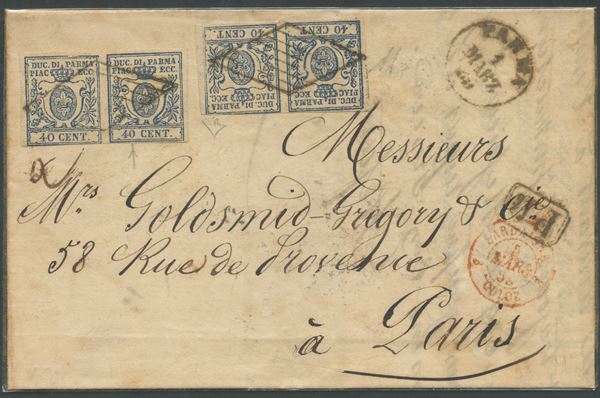 DUC. DI PARMA
PIAC. ECC.
40 CENT.
DUC. DI PARMA
PIAC. ECC.
40 CENT.
DUC. DI PARMA
PIAC. ECC
40 CENT.
DUC. DI PARMA
PIAC. ECC
40 CENT.
PARMA
1
MARZ
Messieurs
Mrs Goldsmid-Gregory & Cie
58 Rue de Provence
à Paris
P.D.
SARD.
5
MARS
CULOZ